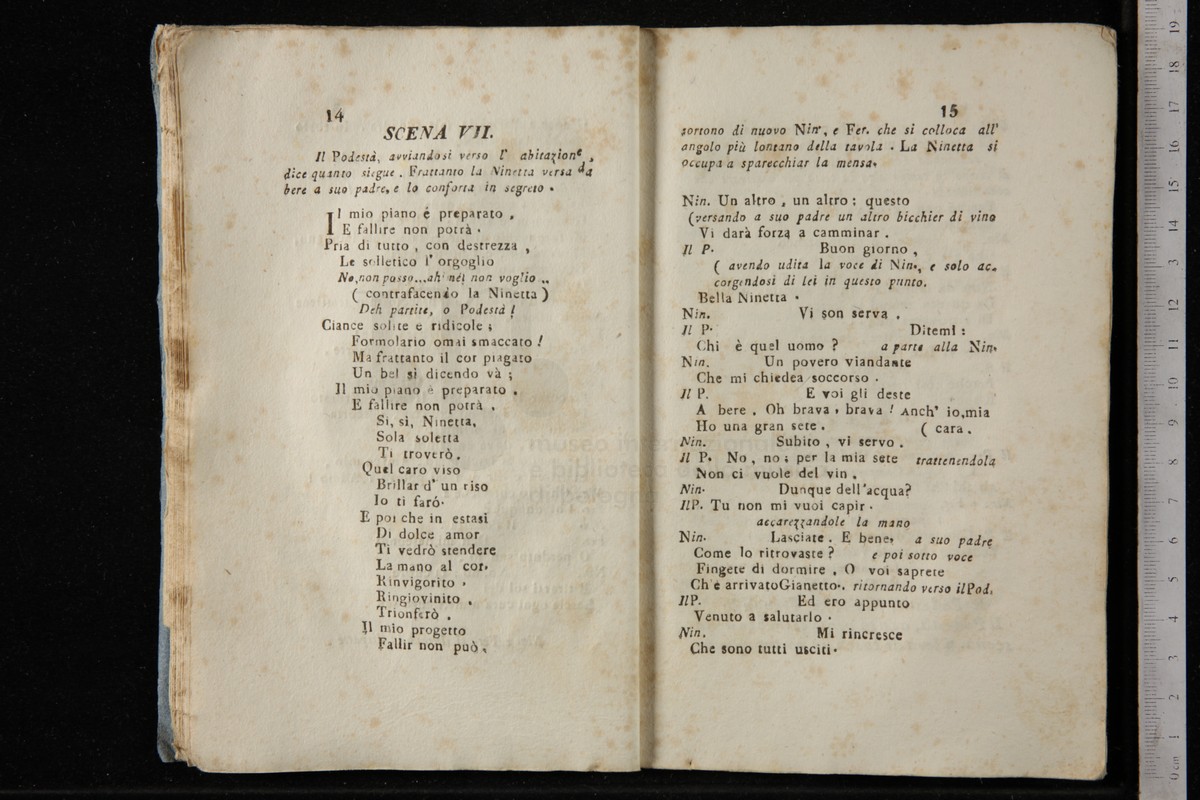 14
SCENA VII.
Il Podestà, avviandosi verso l' abitazione,
dice quanto siegue. Frattanto la Ninetta versa da
bere a suo padre, e lo conforta in segreto.
Il mio piano é preparato,
E fallire non potrà.
Pria di tutto, con destrezza,
Le solletico l' orgoglio
No, non posso...ah! né! non voglio ,,
( contrafacendo la Ninetta )
Deh partite, o Podestà !
Ciance solite e ridicole ;
Formolario omai smaccato !
Ma frattanto il cor piagato
Un bel si dicendo và ;
Il mio piano è preparato,
E fallire non potrà,
Si, si, Ninetta,
Sola soletta
Ti troverò,
Quel caro viso
Brillar d' un riso
Io ti faró.
E poi che in estasi
Di dolce amor
Ti vedrò stendere
La mano al cor.
Rinvigorito,
Ringiovinito,
Trionferò.
Il mio progetto
Fallir non può,
15
sortono di nuovo Nin, e Fer. che si colloca all'
angolo più lontano della tavola. La Ninetta si
occupa a sparecchiar la mensa.
Nin. Un altro, un altro: questo
(versando a suo padre un altro bicchier di vino
Vi darà forza a camminar.
Il P. Buon giorno,
( avendo udita la voce di Nin., e solo ac-
corgendosi di lei in questo punto.
Bella Ninetta.
Nin. Vi son serva,
Il P. Ditemi:
Chi è quel uomo ? a parte alla Nin.
Nin. Un povero viandante
Che mi chiedea soccorso.
Il P. E voi gli deste
A bere. Oh brava, brava ! Anch' io,mia
Ho una gran sete. ( cara.
Nin. Subito, vi servo.
Il P. No, no; per la mia sete trattenendola
Non ci vuole del vin.
Nin. Dunque dell'acqua?
Il P. Tu non mi vuoi capir.
accarezzandole la mano
Nin. Lasciate. E bene, a suo padre
Come lo ritrovaste ? e poi sotto voce
Fingete di dormire, O voi saprete
Ch'è arrivato Gianetto.. ritornando verso il Pod.
Il P. Ed ero appunto
Venuto a salutarlo.
Nin. Mi rincresce
Che sono tutti usciti.
museo inter
e bibliote
di bologna